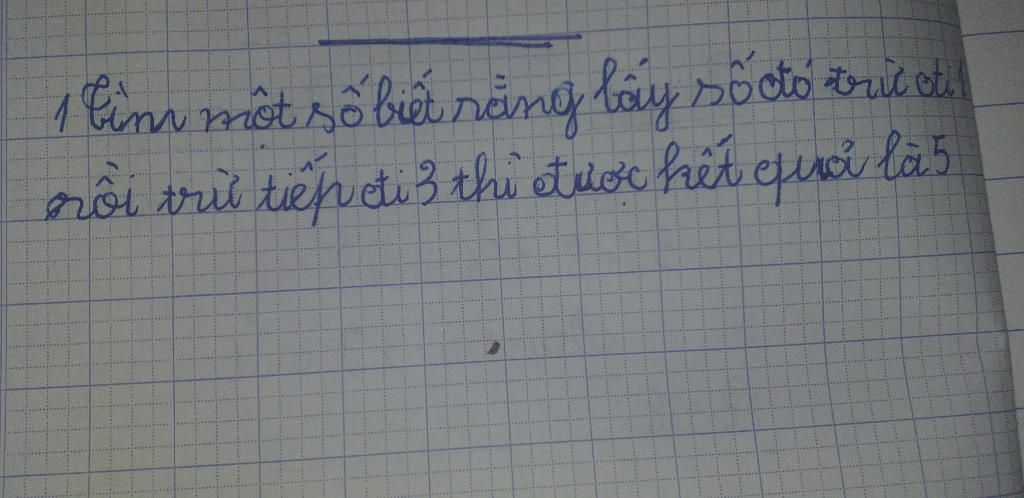 1 Tìm một số biết rằng lấy số đó trừ đi 1
rồi trừ tiếp đi 3 thì được kết quả là 5